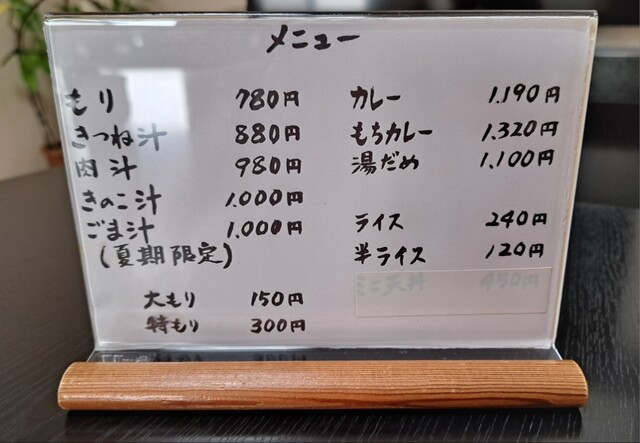 メニュー
もり 780円
きつね汁 880円
肉汁 980円
きのこ汁 1.000円
ごま汁 1.000円
(夏期限定)
大もり 150円
特もり 300円
カレー 1.190円
もちカレー 1.320円
湯だめ 1.100円
ライス 240円
半ライス 120円
ミニ天丼 450円